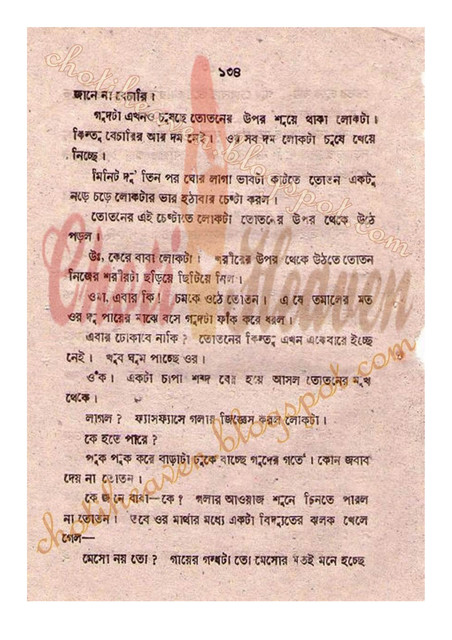 ১৩৪
জানে না বেচারি।
গুদটা এখনও চুষছে তোতনের উপর শুয়ে থাকা লোকটা।
কিন্তু বেচারির আর দম নেই। ওর সব দম লোকটা চুষে খেয়ে
নিচ্ছে।
মিনিট দু' তিন পর ঘোর লাগা ভাবটা কাটতে তোতন একটু
নড়ে চড়ে লোকটার ভার হঠাবার চেষ্টা করল।
তোতনের এই চেষ্টাতে লোকটা তোতনের উপর থেকে উঠে
পড়ল।
উঃ, কেরে বাবা লোকটা। শরীরের উপর থেকে উঠতে তোতন
নিজের শরীরটা ছড়িয়ে ছিটিয়ে দিল।
ওমা, এবার কি! চমকে ওঠে তোতন। এ যে তমালের মত
ওর দু পায়ের মাঝে বসে গুদটা ফাঁক করে ধরল।
এবার ঢোকাবে নাকি? তোতনের কিন্তু এখন একেবারে ইচ্ছে
নেই। খুব ঘুম পাচ্ছে ওর।
ওঁক। একটা চাপা শব্দ বের হয়ে আসল তোতনের মুখ
থেকে।
লাগল? ফ্যাসফ্যাসে গলায় জিজ্ঞেস করল লোকটা।
কে হতে পারে?
পুক পুক করে বাড়াটা ঢুকে যাচ্ছে গুদের গর্তে। কোন জবাব
দেয় না তোতন।
কে জানে বাবা—কে? গলার আওয়াজ শুনে চিনতে পারল
না তোতন। তবে ওর মাথার মধ্যে একটা বিদ্যুতের ঝলক খেলে
গেল—
মেসো নয় তো? গায়ের গন্ধটা তো মেসোর মতই মনে হচ্ছে
Choti Heaven
chotiheaven.blogspot.com
chotiheaven.blogspot.com